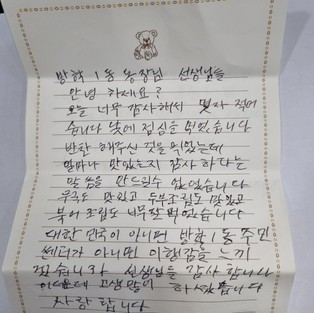 방학1동 동장님 선생님들
안녕 하세요?
오늘 너무 감사해서 몇자 적어
습니다 낮에 점심을 먹었습니다
반찬 해주신 것을 먹었는데
얼마나 맛있는지 감사 하다는
말씀을 안드릴수 없었습니다
무국도 맛있고 두부조림도 맛있고
북어 조림도 너무잘 먹었습니다
대한 민국이 아니면 방학1동 주민
쎈터가 아니면 이행복을 느끼
겠습니까 선생님들 감사 합니다
더운데 고생많이 하셨습니다
사랑 합니다